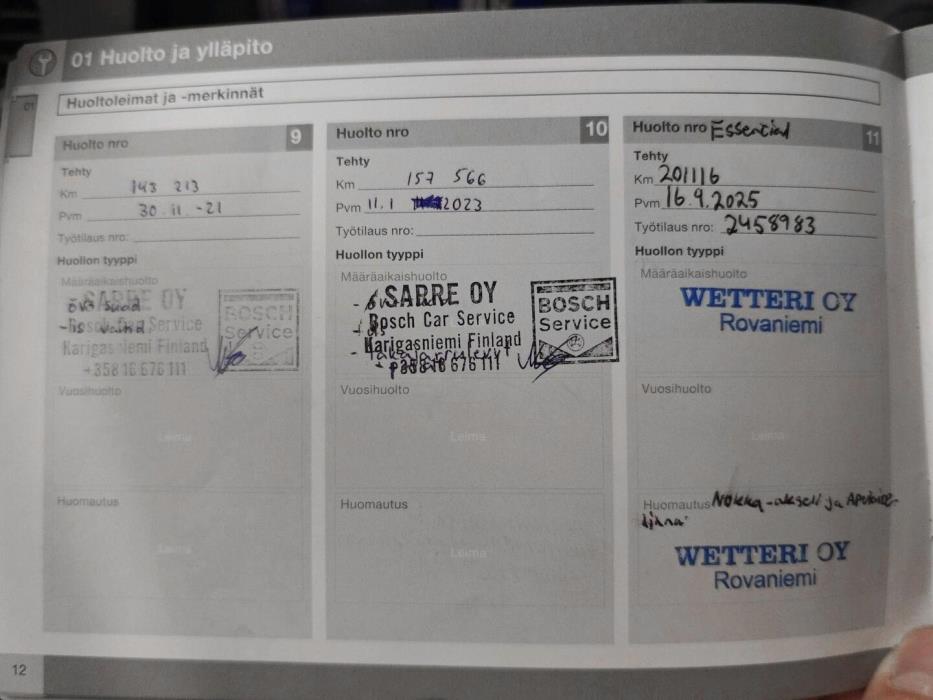 01 Huolto ja ylläpito
01
Huoltoleimat ja -merkinnät
Huolto nro 9
Tehty
Km 143 213
Pvm 30.11.-21
Työtilaus nro:
Huollon tyyppi
Määräaikaishuolto
SARRE OY
Bosch Car Service
Karigasniemi Finland
+358 16 676 111
BOSCH
Service
Vuosihuolto
Leima
Huomautus
Leima
Huolto nro 10
Tehty
Km 157 566
Pvm 11.1 2023
Työtilaus nro:
Huollon tyyppi
Määräaikaishuolto
SARRE OY
Bosch Car Service
Karigasniemi Finland
+358 16 676 111
BOSCH
Service
Vuosihuolto
Leima
Huomautus
Leima
Huolto nro Essential 11
Tehty
Km 201116
Pvm 16.9.2025
Työtilaus nro: 2458983
Huollon tyyppi
Määräaikaishuolto
WETTERI OY
Rovaniemi
Vuosihuolto
Leima
Huomautus Nokka-akseli ja Apulaite-
hihna
WETTERI OY
Rovaniemi
12